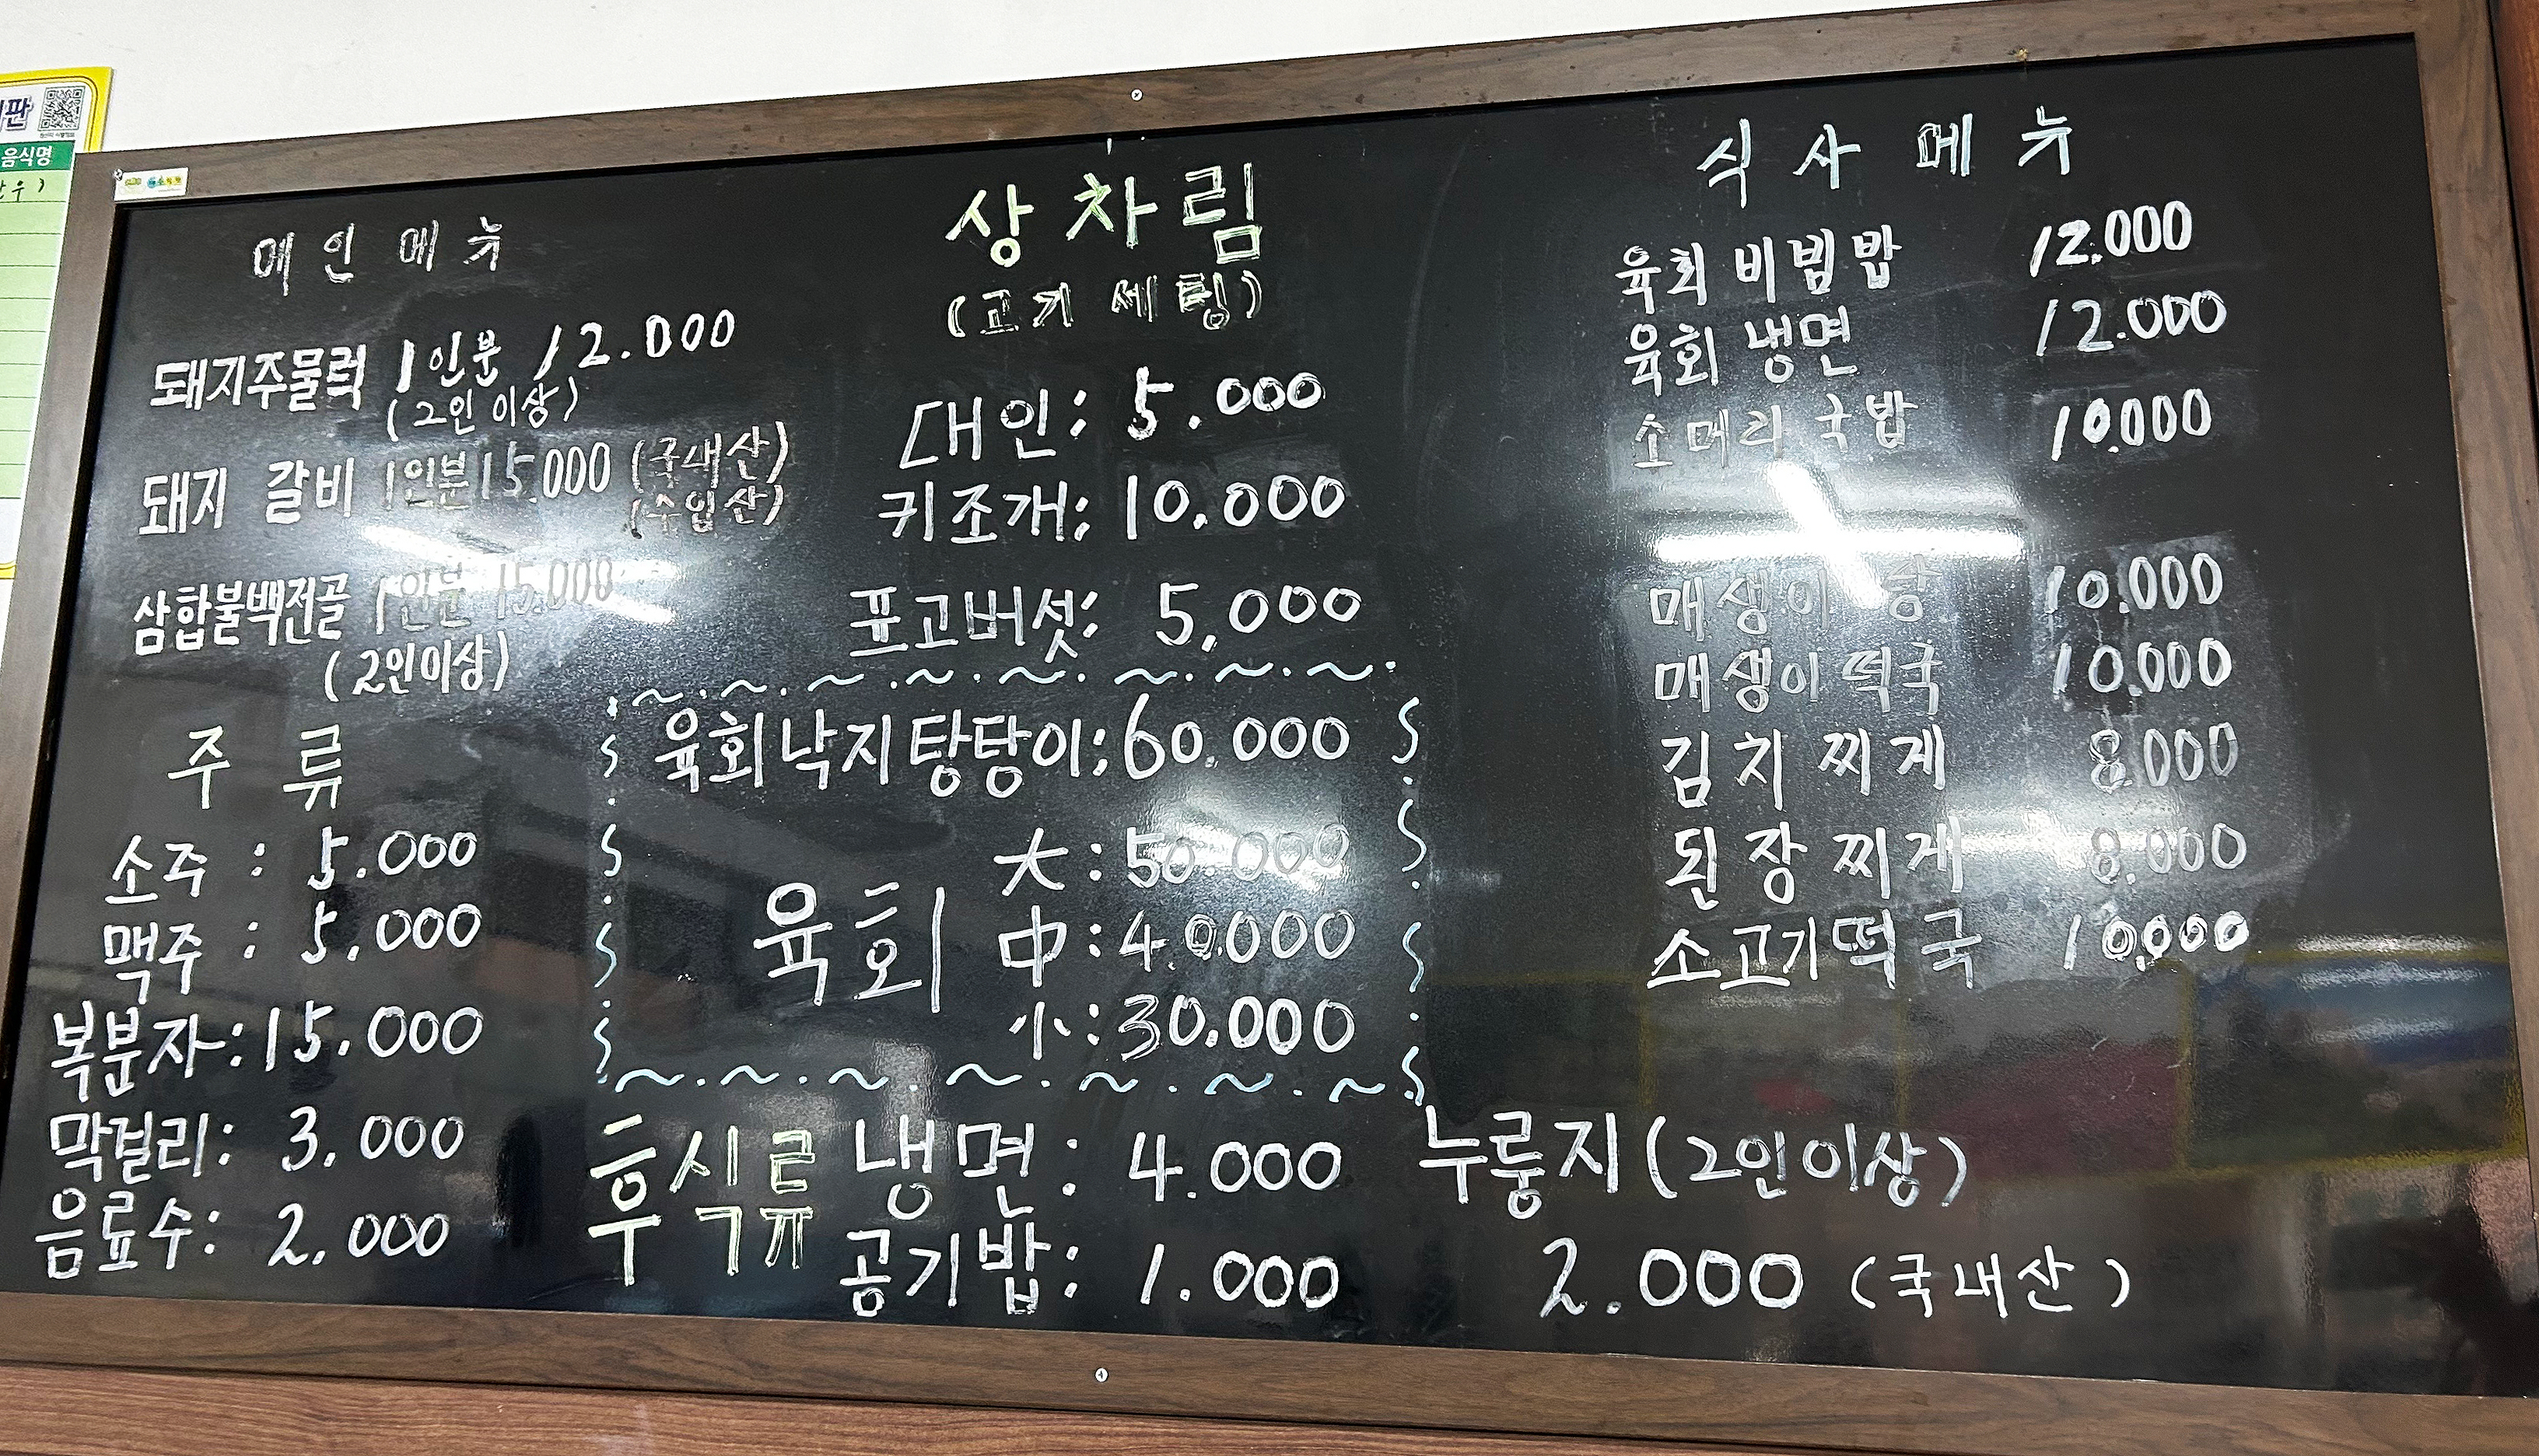 판
음식명
메인메뉴
돼지주물럭 1인분 12.000
(2인 이상)
돼지 갈비 1인분 15.000 (국내산)
(수입산)
삼합불백전골 1인분 15.000
(2인이상)
주 류
소주 : 5.000
맥주 : 5.000
복분자:15.000
막걸리: 3.000
음료수: 2.000
상차림
(고기 세팅)
대인: 5.000
키조개: 10.000
표고버섯: 5,000
육회낙지탕탕이: 60.000
육회 大:50.000
中:40.000
小:30.000
후식류 냉면: 4.000
공기밥: 1.000
누룽지(2인이상)
2.000 (국내산)
식사메뉴
육회비빔밥 12.000
육회냉면 12.000
소머리국밥 10.000
매생이탕 10.000
매생이떡국 10.000
김치찌게 8.000
된장찌게 8.000
소고기떡국 10,000